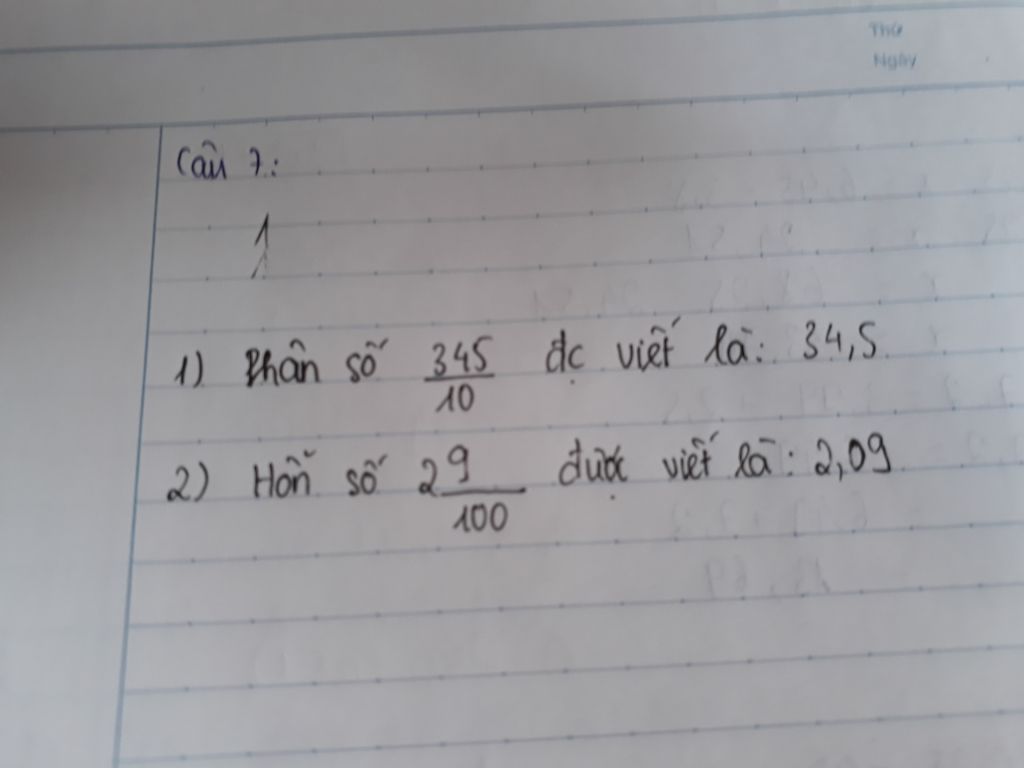 Thứ
Ngày
Câu 7:
1
1) Phân số 345/10 đc viết là: 34,5
2) Hỗn số 2 9/100 được viết là: 2,09